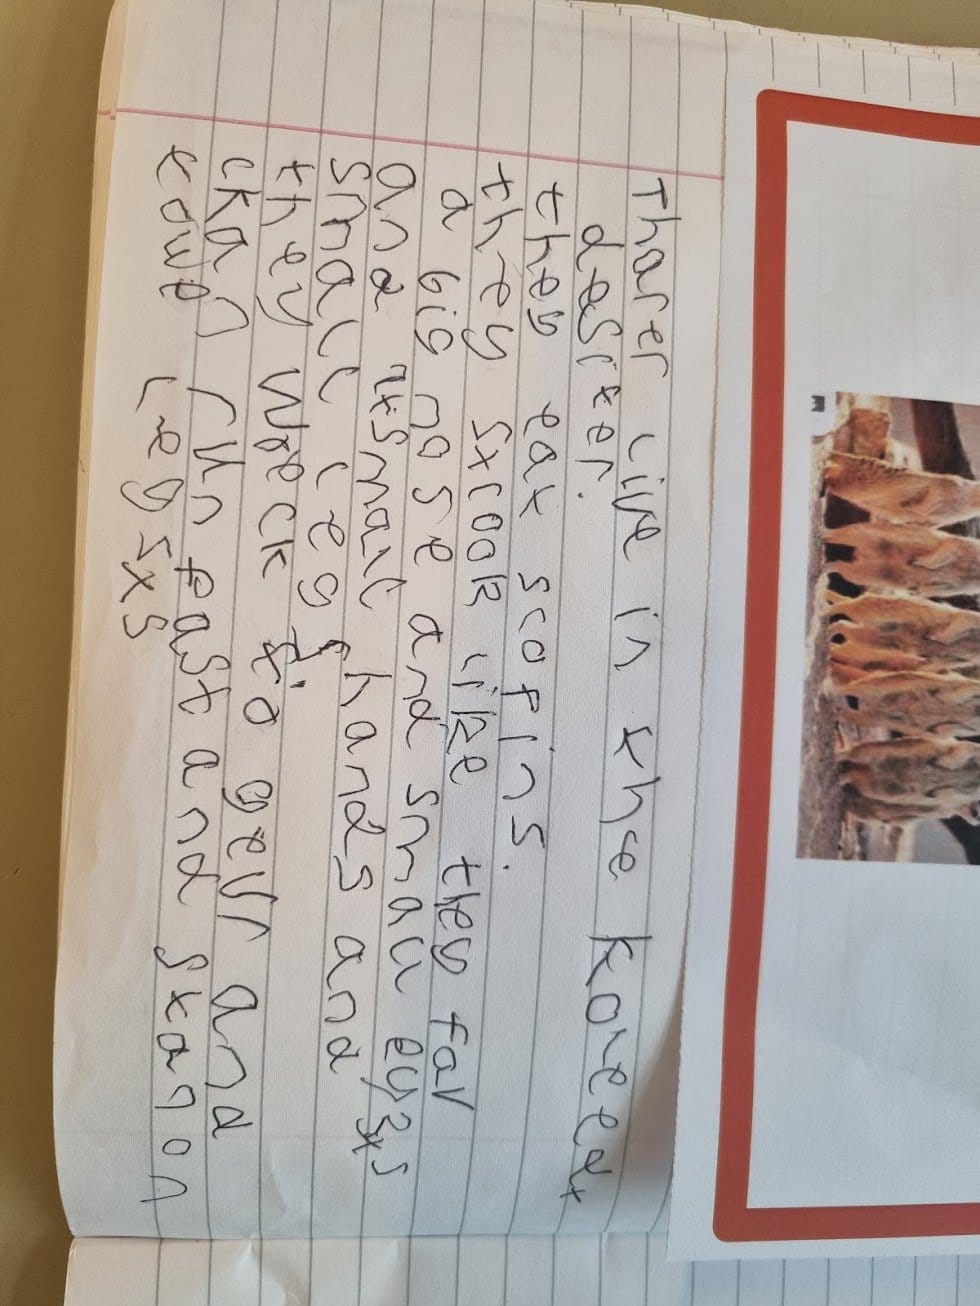 Tharer live in the koreedt
desrter.
they eat scorfins.
they sxcook like they fav
a big nose and small eyszs
and small hands and
small leg s
they wreck to gevr and
chan run fast and stanon
towe legsxs